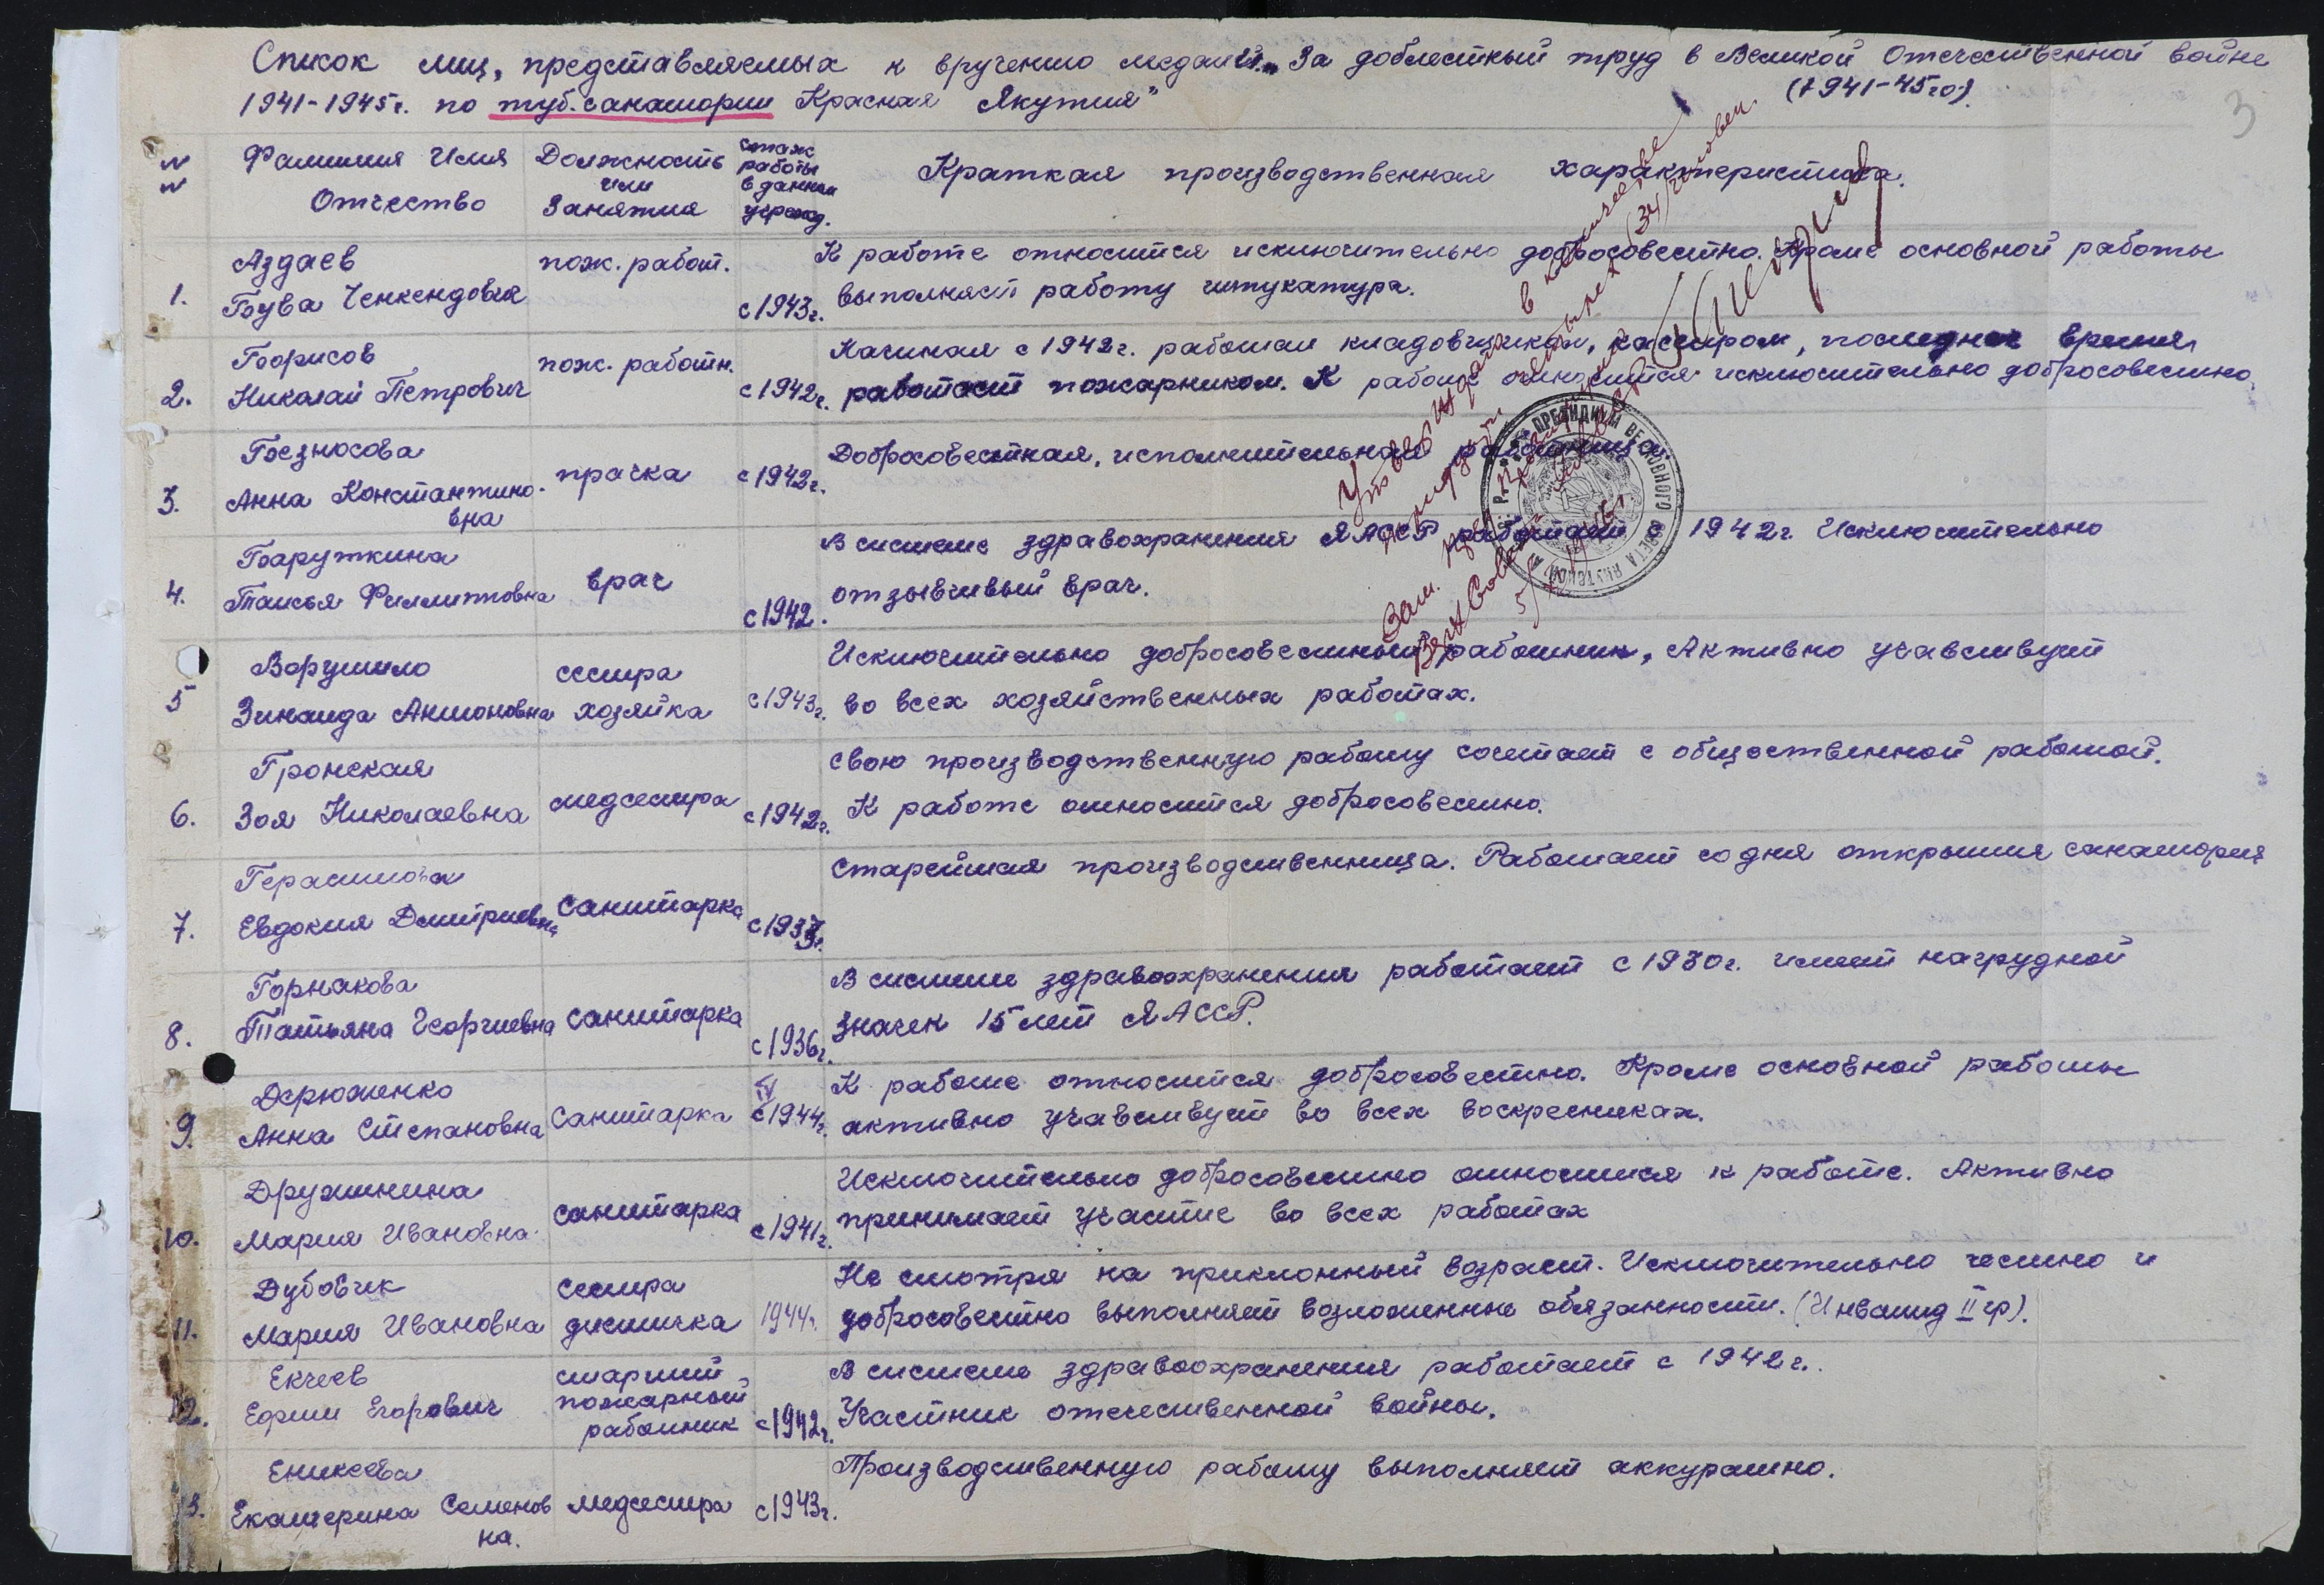 Список лиц, представляемых к вручению медали „За доблестный труд в Великой Отечественной войне
1941-1945г. по туб. санатории Красная Якутия"
(1941-45гг).
3
Фамилия Имя
Отчество
Должность
или
Занятия
стаж
работы
в данном
учрежд.
Краткая производственная характеристика.
1.
Аздаев
Бува Ченкендовия
пож. работ.
с 1943г.
К работе относится исключительно добросовестно. Кроме основной работы
выполняет работу штукатура.
2.
Борисов
Николай Петрович
пож. работн.
с 1942г.
Начиная с 1942г. работал кладовщиком, кассиром, последнее время
работает пожарником. К работе относится исключительно добросовестно.
3.
Безносова
Анна Константино-
вна
прачка
с 1942г.
Добросовестная, исполнительная работница.
4.
Баруткина
Таисья Филипповна
врач
с 1942.
В системе здравохранения ЯАССР работает с 1942г. Исключительно
отзывчивый врач.
5
Ворушило
Зинаида Антоновна
сестра
хозяйка
с 1943г.
Исключительно добросовестный работник, Активно учавствует
во всех хозяйственных работах.
6.
Гронская
Зоя Николаевна
медсестра
с 1942г.
Свою производственную работу сочетает с общественной работой.
К работе относится добросовестно.
7.
Герасимова
Евдокия Дмитриевна
Санитарка
Старейшая производственница. Работает со дня открытия санатория
8.
Горнакова
Татьяна Георгиевна
санитарка
с 1936г.
В системе здравоохранения работает с 1930г. имеет нагрудной
значек 15 лет ЯАССР.
9.
Дерюженко
Анна Степановна
Санитарка
IV
с 1944г.
К работе относится добросовестно. Кроме основной работы
активно учавствует во всех воскресниках.
10.
Дружинина
Мария Ивановна
санитарка
с 1941г.
Исключительно добросовестно относится к работе. Активно
принимает участие во всех работах
11.
Дубовик
Мария Ивановна
сестра
диетичка
1944г.
Не смотря на приклонный возраст. Исключительно честно и
добросовестно выполняет возложенные обязанности. (Инвалид II гр).
12.
Екчеев
Ефим Егорович
старший
пожарный
работник
с 1942г.
В системе здравоохранения работает с 1942г.
Участник отечественной войны.
13.
Еникеева
Екатерина Семенов
на.
медсестра
с 1943г.
Производственную работу выполняет аккуратно.
Утверждаю в количестве
(34) человек.
Зам. Пред. Президиума
Верх Совета ЯАССР
ПРЕЗИДИУМ ВЕРХОВНОГО СОВЕТА ЯКУТСКОЙ